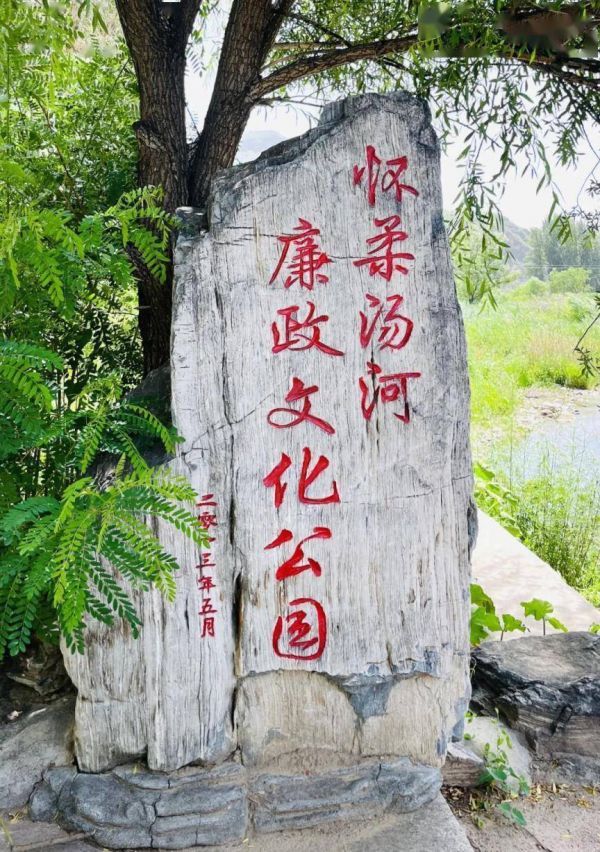 怀柔汤河
廉政文化公园
二零一三年五月